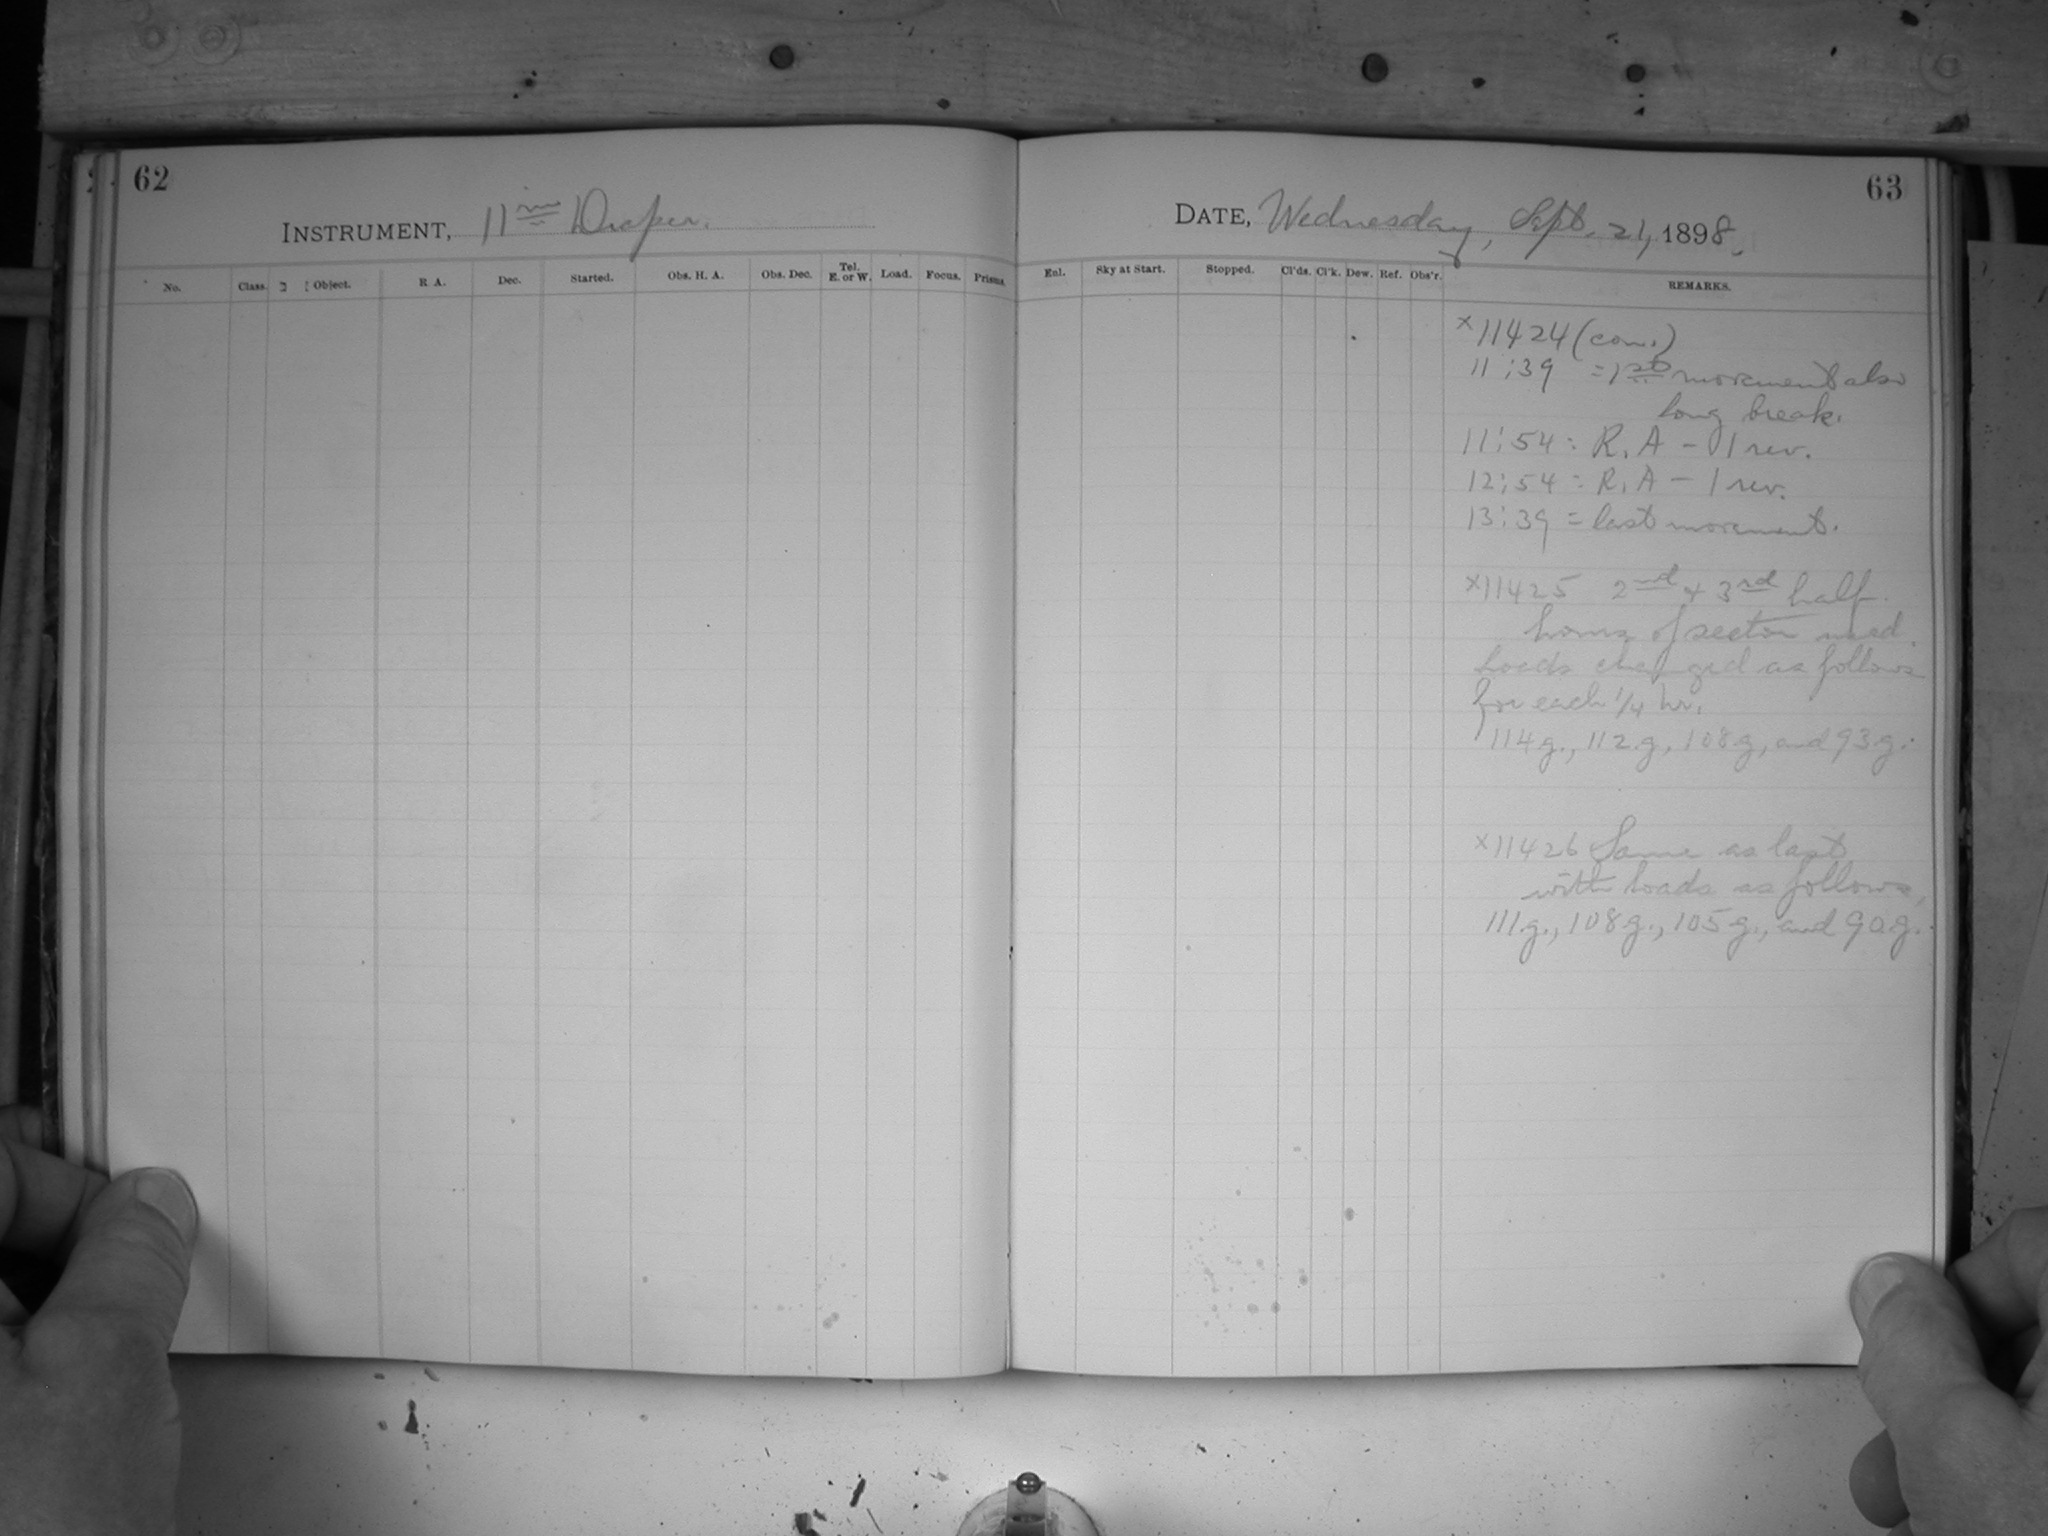 62
INSTRUMENT, 11 in Draper.
No. Class. Object. R A. Dec. Started. Obs. H. A. Obs. Dec. Tel. E. or W. Load. Focus. Prisms.
63
DATE, Wednesday, Sept. 21, 1898.
Enl. Sky at Start. Stopped. Cl'ds. Cl'k. Dew. Ref. Obs'r. REMARKS.
x11424 (con.)
11:39 = 1st movement also
long break.
11:54 = R. A - 1 rev.
12:54 = R. A - 1 rev.
13:39 = last movement.
x11425 2nd + 3rd half
hours of sector used.
Loads changed as follows
for each 1/4 hr.
114 g., 112 g, 108 g, and 93 g.
x11426 Same as last
with loads as follows,
111 g., 108 g., 105 g., and 90 g.